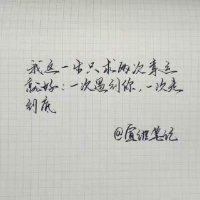 我这一生只求两次幸运
就好：一次遇到你，一次走
到底